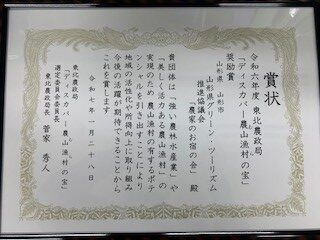 賞状
令和六年度 東北農政局
「ディスカバー農山漁村の宝」
奨励賞
山形県 山形市
山形県グリーン・ツーリズム
推進協議会
「農家のお宿の会」 殿
貴団体は「強い農林水産業」や
「美しく活力ある農山漁村」の
実現のため農山漁村の有するポテ
ンシャルを引き出すことにより
地域の活性化や所得向上に取り組み
今後の活躍が期待できることから
これを賞します
令和七年一月二十八日
東北農政局
「ディスカバー農山漁村の宝」
選定委員会委員長
東北農政局長 菅家 秀人